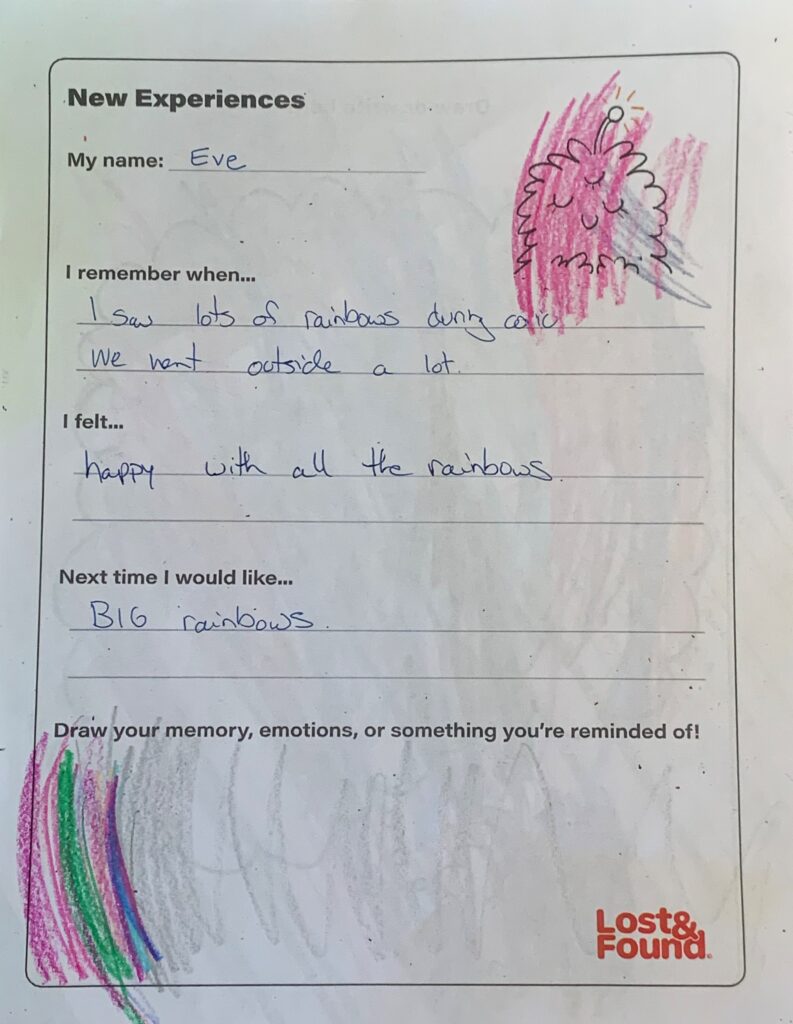 New Experiences
My name: Eve
I remember when...
I saw lots of rainbows during
We went outside a lot.
I felt...
happy with all the rainbows.
Next time I would like...
BIG rainbows.
Draw your memory, emotions, or something you're reminded of!
Lost&
Found